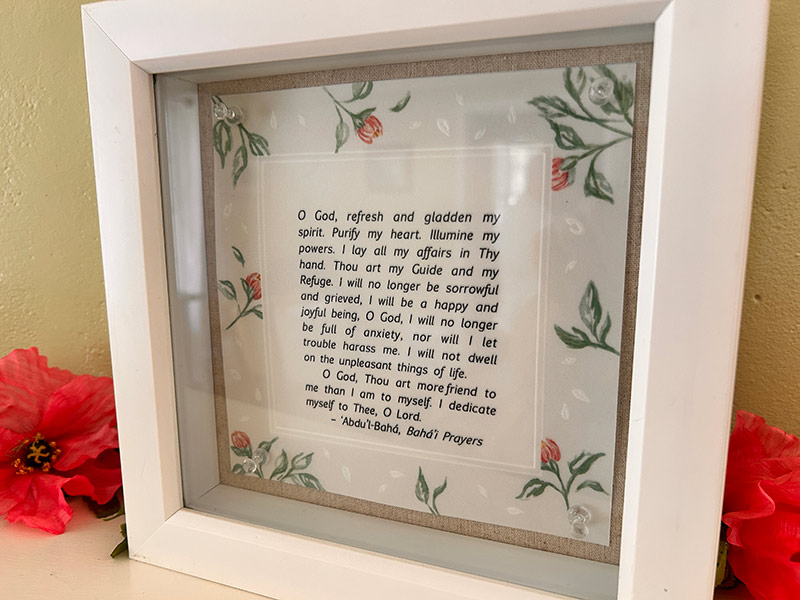 O God, refresh and gladden my
spirit. Purify my heart. Illumine my
powers. I lay all my affairs in Thy
hand. Thou art my Guide and my
Refuge. I will no longer be sorrowful
and grieved, I will be a happy and
joyful being, O God, I will no longer
be full of anxiety, nor will I let
trouble harass me. I will not dwell
on the unpleasant things of life.
O God, Thou art more friend to
me than I am to myself. I dedicate
myself to Thee, O Lord.
– ‘Abdu’l-Bahá, Bahá’í Prayers